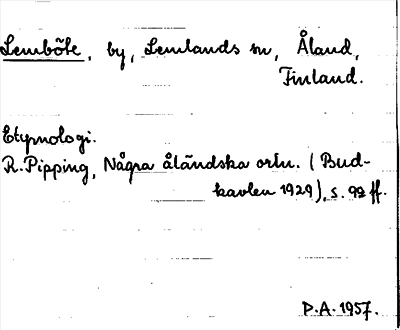 Lemböte, by, Lemlands sn, Åland,
Finland.
Etymologi.
R. Pipping, Några åländska ortn. (Bud-
kavlen 1929), s. 92 ff.
P.A. 1957.